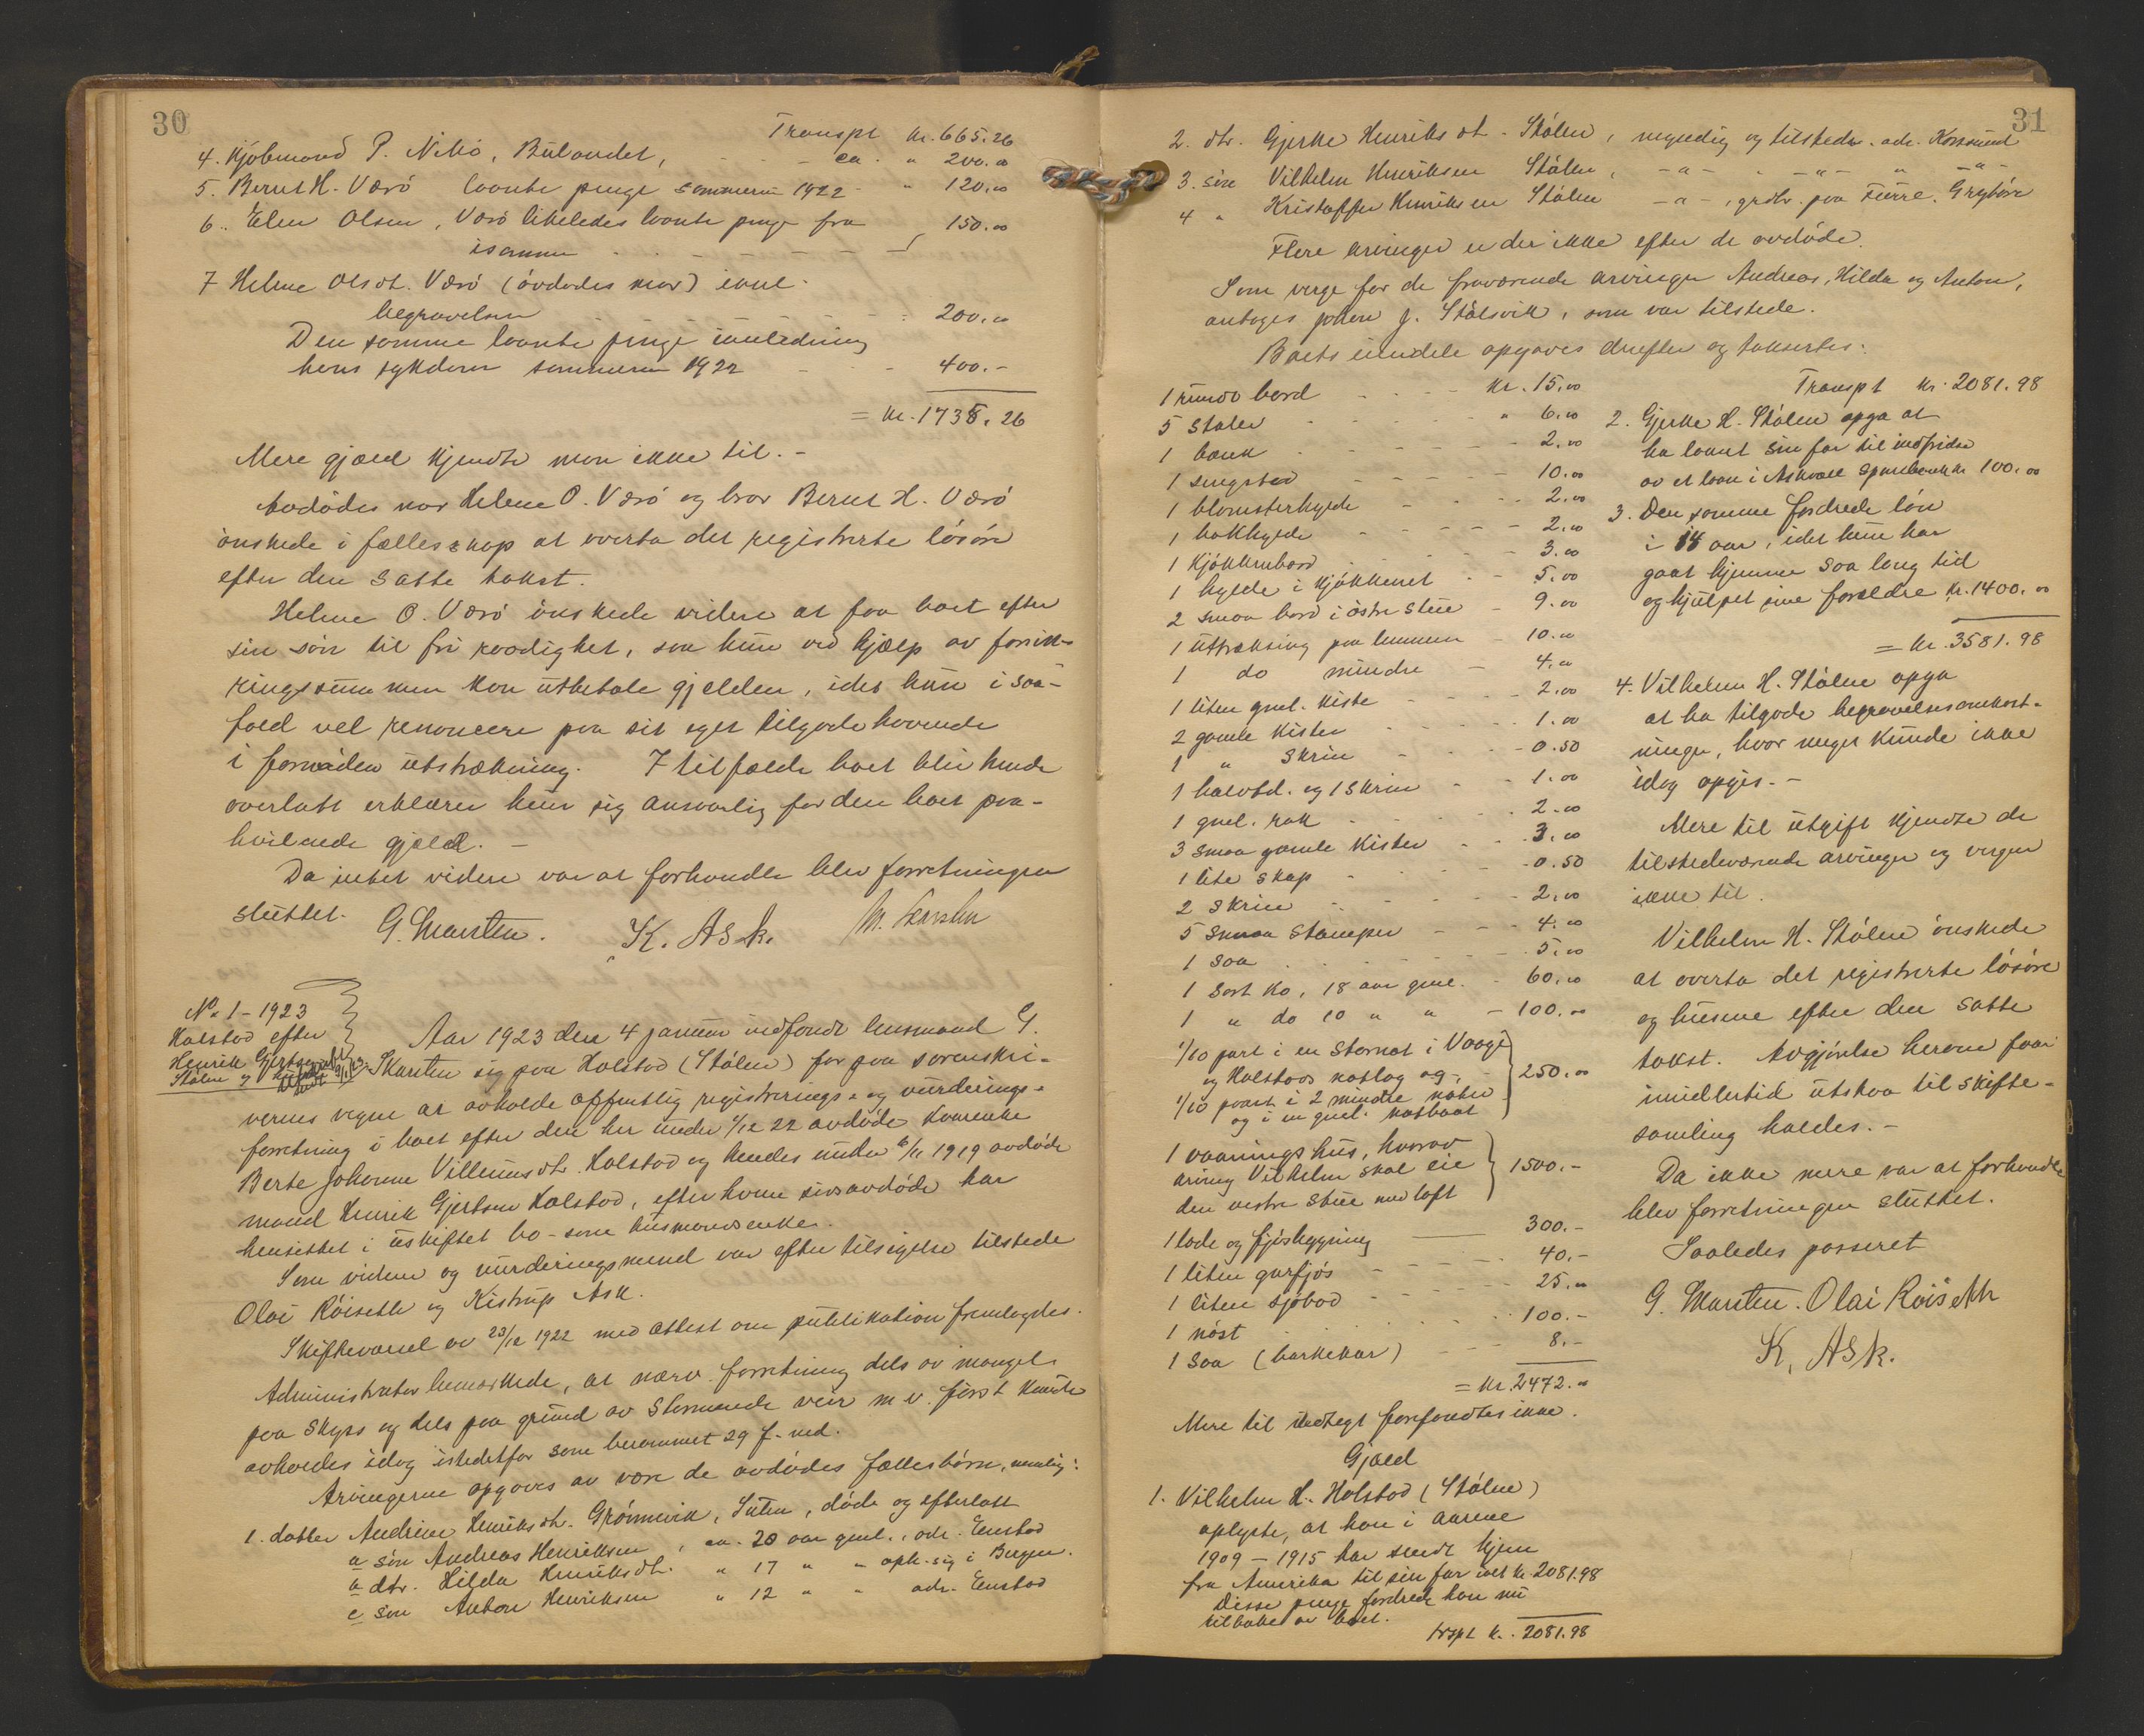 30
Transpt kr. 665.26
4. Kjöbmand P. Nikö, Bulandet, - - - ca. " 200.00
5. Bernt H. Værö laante penge sommeren 1922 - " 120.00
6. Elen Olsen, Værö likeledes laante penge fra
isamme - - - - - 150.00
7 Helene Olsdt. Værö (avdödes mor) inkl.
begravelsen - - - 200.00
Den samme laante penge i anledning
hans sykdom sommeren 1922 - - - 400.-
= kr. 1735.26
Mere gjæld kjendte man ikke til. -
Avdödes mor Helene O. Værö og bror Bernt H. Værö
önskede i fællesskap at overta det registrerte lösöre
efter den satte takst.
Helene O. Værö önskede videre at faa boet efter
sin sön til fri raadighet, saa hun ved hjælp av forsik-
ringssummen kan utbetale gjælden, idet hun i saa-
fald vel renoncere paa sit eget tilgodehavende
i fornöden utstrækning. I tilfælde boet blir hende
overlatt erklærer hun sig ansvarlig for den boet paa-
hvilende gjæld. -
Da intet videre var at forhandle blev forretningen
sluttet.
G. Marsten. K. Ask.
No 1 - 1923
Holstad efter
Henrik Gjertsen
Stölen og hustru
Aar 1923 den 4 januar indfandt lensmand G.
Marsten sig paa Holstad (Stölen) for paa sorenskri-
verens vegne at avholde offentlig registrerings- og vurderings-
forretning i boet efter den her under 1/12 22 avdöde kaarenke
Berte Johanne Villumsdtr. Holstad og hendes under 6/11 1919 avdöde
mand Henrik Gjertsen Holstad, efter hvem sidstavdöde har
hensittet i uskiftet bo - som husmandsenke.
Som vidner og vurderingsmænd var efter tilsigelse tilstede
Olai Röiseth og Kistrup Ask.
Skiftevarsel av 23/12 1922 med attest om publikation fremlagdes.
Administrator bemerkede, at nærv. forretning dels av mangel
paa skyss og dels paa grund av stormende veir m.v. först kunde
avholdes idag istedetfor som berammet 29 f. md.
Arvingerne opgaves av være de avdödes fællesbörn, nemlig:
1. datter Andrine Henriksdtr. Grönnevik, Sulen, döde og efterlatt
a sön Andreas Henriksen, ca. 20 aar gml., adr. Enstad
b dtr. Hilda Henriksdtr. " 17 " " oph. sig i Bergen.
c sön Anton Henriksen " 12 " " adr. Enstad
31
2. dtr. Gjerke Henriksdt. Stölen, myndig og tilstede. adr. Korssund
3. sön Vilhelm Henriksen Stölen, -"- " -"- " -"-
4 " Kristoffer Henriksen Stölen -"-, grdbr. paa Furre. Grytöira
Flere arvinger er der ikke efter de avdöde.
Som verge for de fraværende arvinger Andreas, Hilda og Anton,
antoges Johan J. Stölsvik, som var tilstede.
Boets eiendele opgaves derefter og takseredes:
1 rundt bord - - - kr. 15.00
5 stoler - - - - " 6.00
1 bænk - - - - 2.00
1 sengsted - - - - 10.00
1 blomsterhylde - - - 2.00
1 bakhylde - - - - 2.00
1 kjökkenbord - - - - 3.00
1 hylde i kjökkenet - - 5.00
2 smaa bord i östre stue - 9.00
1 uttræksing paa lemmen - 10.00
1 do mindre - 4.00
1 liten gml. kiste - - - 2.00
2 gamle kister - - - 1.00
1 " skrin - - - 0.50
1 halvtd. og 1 skrin - - 1.00
1 gml. rok - - - - 2.00
3 smaa gamle kister - - 3.00
1 lite skap - - - - 0.50
2 skrin - - - - 2.00
5 smaa stamper - - - 4.00
1 saa - - - - 5.00
1 sort ko, 18 aar gml. - 60.00
1 " do 10 " " - 100.00
1/10 part i en stornot i Vaage
og Holstads notlag og
1/10 paart i 2 mindre nöter
og i en gml. notbaat 250.00
1 vaaningshus, hvorav
arving Vilhelm skal eie
den vestre stue med loft 1500.-
1 lade og fjösbygning 300.-
1 liten gurfjös - - - 40.-
1 liten sjöbod - - - 25.00
1 nöst - - - - 100.-
1 saa (barkekar) - - - 8.-
= kr. 2472.00
Mere til indtægt forefandtes ikke.
Gjæld
1. Vilhelm H. Holstad (Stölen)
oplyste, at han i aarene
1909 - 1915 har sendt hjem
fra Amerika til sin far ialt kr. 2081.98
Disse penge fordrede han nu
tilbake av boet.
trspt kr. 2081.98
Transpt kr. 2081.98
2. Gjerke H. Stölen opga at
ha laant sin far til indfrielse
av et laan i Askvoll Sparebank kr 100.00
3. Den samme fordrede lön
i 14 aar, idet hun har
gaat hjemme saa lang tid
og hjulpet sine forældre kr. 1400.00
= kr. 3581.98
4. Vilhelm H. Stölen opga
at ha tilgode begravelsesomkost-
ninger, hvor meget kunde ikke
idag opgis. -
Mere til utgift kjendte de
tilstedeværende arvinger og vergen
ikke til.
Vilhelm H. Stölen önskede
at overta det registrerte lösöre
og husene efter den satte
takst. Avgjörelse herom faar
imidlertid utstaa til skifte-
samling holdes. -
Da ikke mere var at forhandle
blev forretningen sluttet.
Saaledes passeret
G. Marsten. Olai Röiseth
K. Ask.